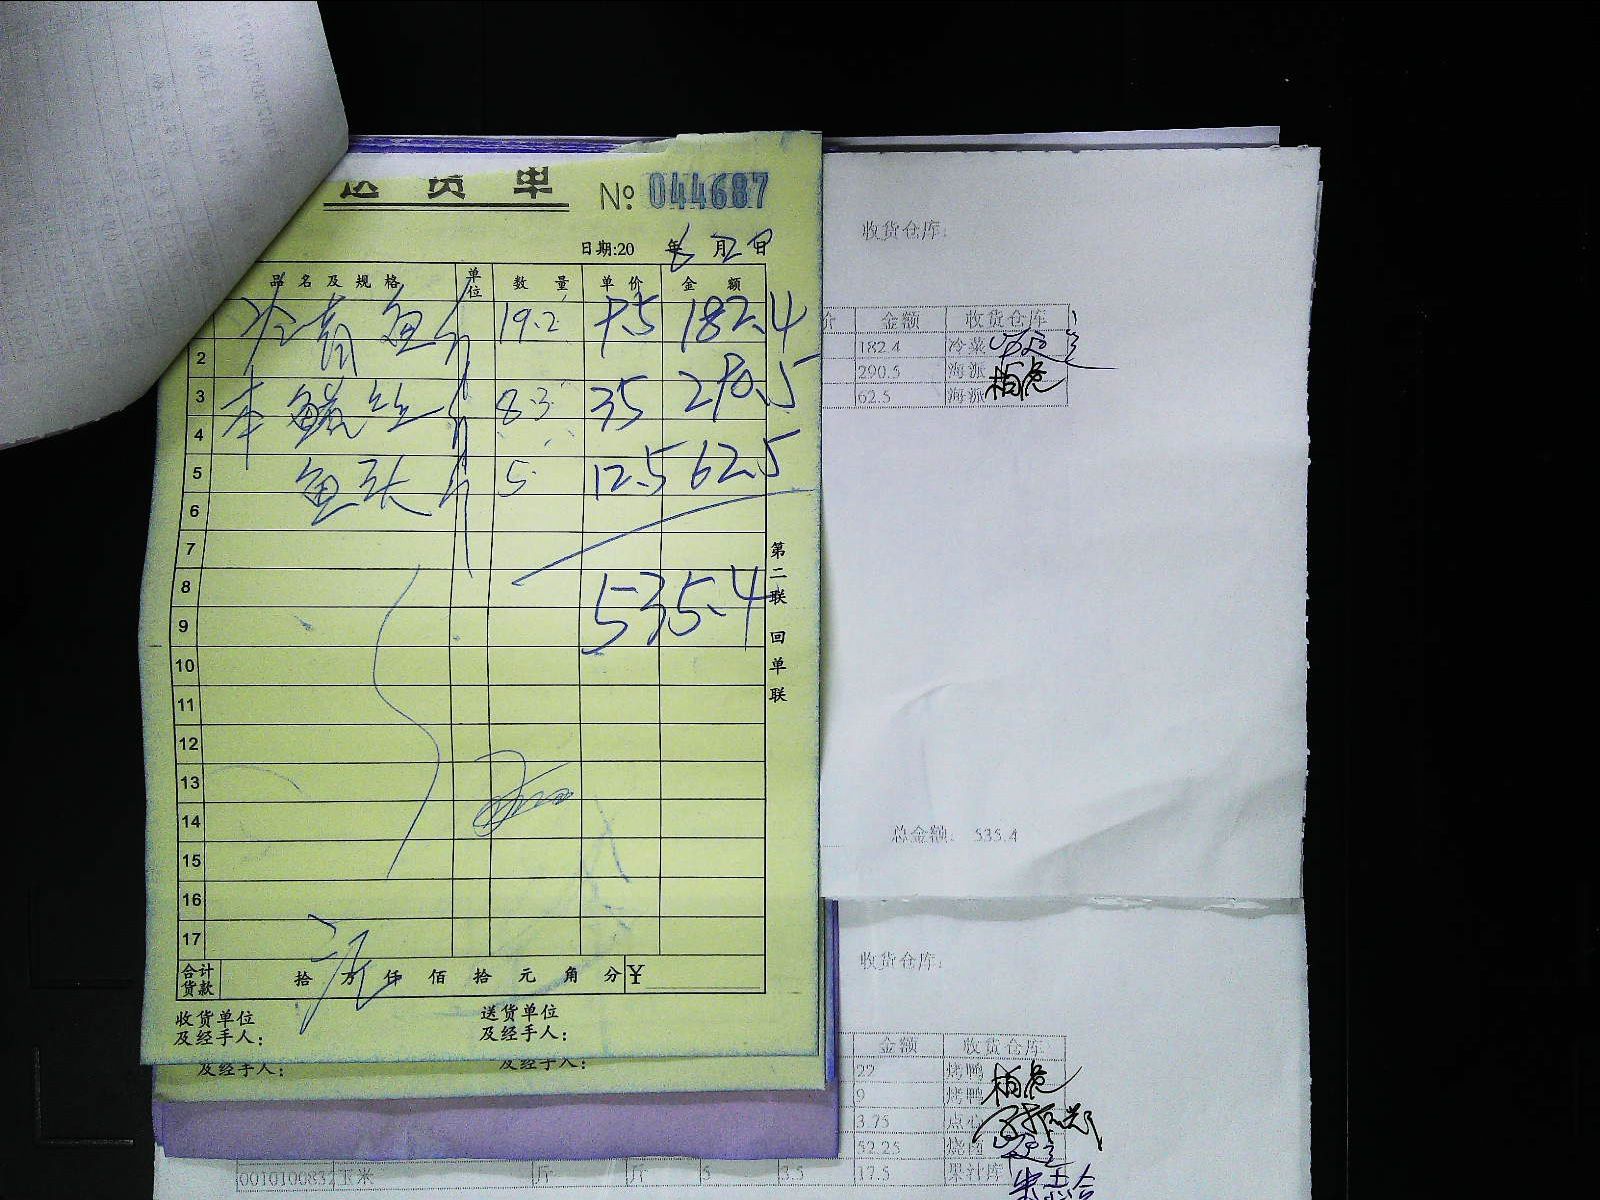 送货单 № 044687
日期:20 年 6 月 2 日
品名及规格 单位 数量 单价 金额
冷青鱼 斤 19.2 9.5 182.4
2
3 本鳝丝 斤 8.3 35 290.5
4
5 鱼头 斤 5 12.5 62.5
6
7
8
9 535.4
10
11
12
13
14
15
16
17
合计货款 拾 万 仟 佰 拾 元 角 分 ¥
收货单位及经手人: 送货单位及经手人:
第二联 回单联
及经手人: 及经手人:
收货仓库:
价 金额 收货仓库
182.4 冷菜
290.5 海派
62.5 海派
总金额: 535.4
收货仓库:
金额 收货仓库
22 烤鸭
9 烤鸭
3.75 点心
52.25 烧卤
0010100832 玉米 斤 斤 5 3.5 17.5 果汁库